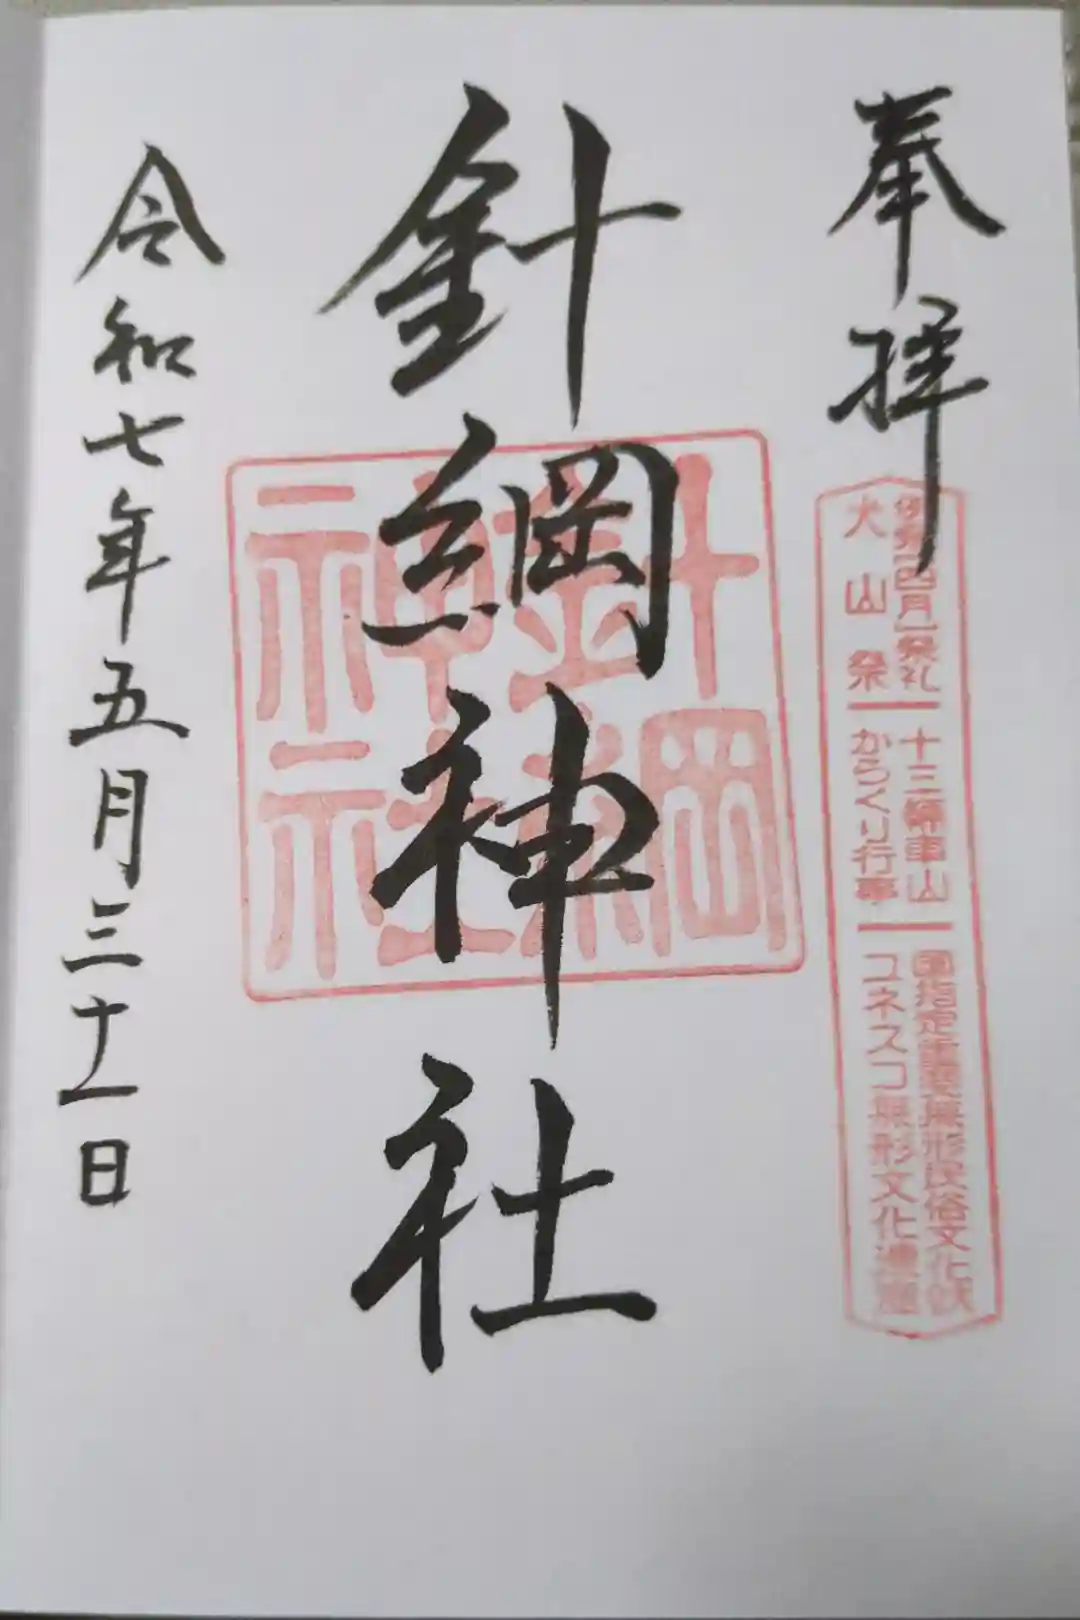 奉拝
十三輌車山
国指定重要無形民俗文化財
犬山祭
からくり行事
ユネスコ無形文化遺産
針綱神社
針綱
神社
令和七年五月三十一日